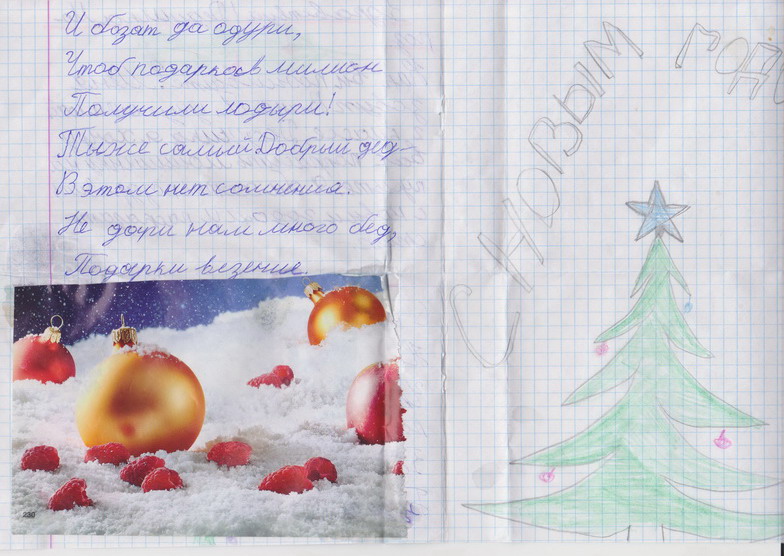 И бозат да одури,
Чтоб подарков милион
Получили лодыри!
Ты же самый Добрый дед
В этом нет сомнения.
Не дари нам много бед,
Подарки везение.
230
С НОВЫМ